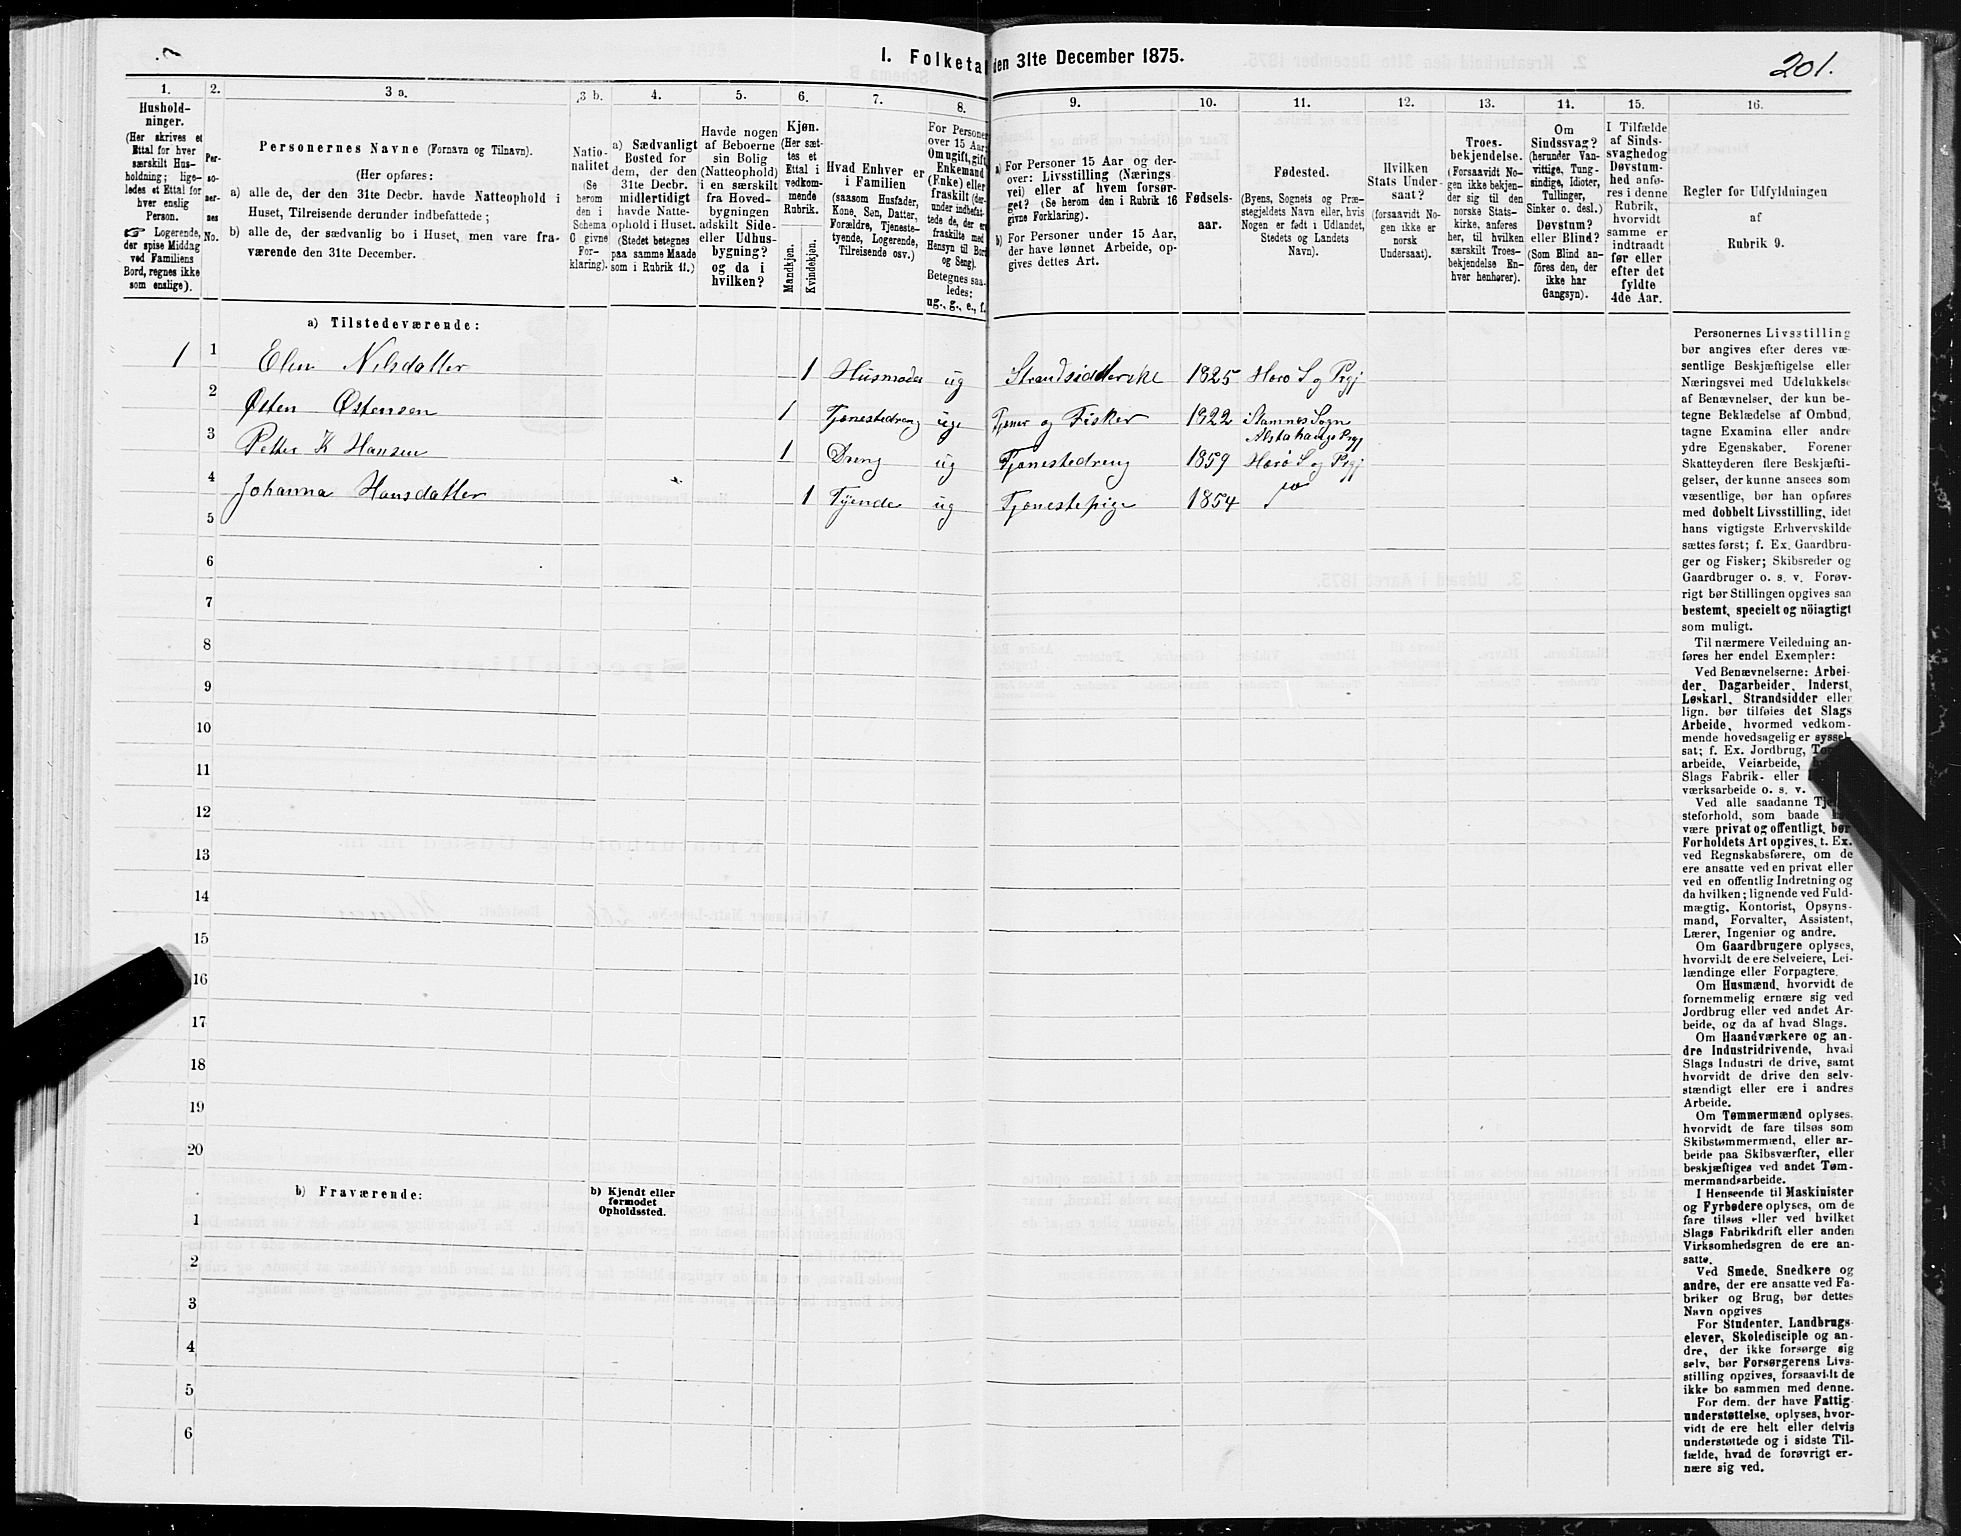 1. Folketa den 31te December 1875.
201.
1.
Hushold-
ninger.
(Her skrives et
Ettal for hver
særskilt Hus-
holdning; lige-
ledes et Ettal for
hver enslig
Person.
☞ Logerende,
der spise Middag
ved Familiens
Bord, regnes ikke
som enslige).
2.
Per-
so-
ner-
nes
No.
3 a.
Personernes Navne (Fornavn og Tilnavn).
(Her opføres:
a) alle de, der den 31te Decbr. havde Natteophold i
Huset, Tilreisende derunder indbefattede;
b) alle de, der sædvanlig bo i Huset, men vare fra-
værende den 31te December.
3 b.
Natio-
nalitet
(Se
herom
den i
Schema
C givne
For-
klaring).
4.
a) Sædvanligt
Bosted for
dem, der den
31te Decbr.
midlertidigt
havde Natte-
ophold i Huset.
(Stedet betegnes
paa samme Maade
som i Rubrik 11.)
5.
Havde nogen
af Beboerne
sin Bolig
(Natteophold)
i en særskilt
fra Hoved-
bygningen
adskilt Side-
eller Udhus-
bygning?
og da i
hvilken?
6.
Kjøn.
(Her sæt-
tes et
Ettal i
vedkom-
mende
Rubrik.
Mandkjøn.
Kvindekjøn.
7.
Hvad Enhver er
i Familien
(saasom Husfader,
Kone, Søn, Datter,
Forældre, Tjeneste-
tyende, Logerende,
Tilreisende osv.)
8.
For Personer
over 15 Aar:
Om ugift, gift,
Enkemand
(Enke) eller
fraskilt (der-
under indbefat-
tede de, der er
fraskilte med
Hensyn til Bord
og Seng).
Betegnes saa-
ledes:
ug., g., e., f.
9.
a) For Personer 15 Aar og der-
over: Livsstilling (Nærings-
vei) eller af hvem forsør-
get? (Se herom den i Rubrik 16
givne Forklaring).
b) For Personer under 15 Aar,
der have lønnet Arbeide, op-
gives dettes Art.
10.
Fødsels-
aar.
11.
Fødested.
(Byens, Sognets og Præ-
stegjeldets Navn eller, hvis
Nogen er født i Udlandet,
Stedets og Landets
Navn).
12.
Hvilken
Stats Under-
saat?
(forsaavidt No-
gen ikke er
norsk
Undersaat).
13.
Troes-
bekjendelse.
(Forsaavidt No-
gen ikke bekjen-
der sig til den
norske Stats-
kirke, anføres
her, til hvilken
særskilt Troes-
bekjendelse En-
hver henhører).
14.
Om
Sindssvag?
(herunder Van-
vittige, Tung-
sindige, Idioter,
Tullinger,
Sinker o. desl.)
Døvstum?
eller Blind?
(Som Blind an-
føres den, der
ikke har
Gangsyn).
15.
I Tilfælde
af Sinds-
svaghed og
Døvstum-
hed anfø-
res i denne
Rubrik,
hvorvidt
samme er
indtraadt
før eller
efter det
fyldte
4de Aar.
16.
Regler for Udfyldningen
af
Rubrik 9.
a) Tilstedeværende:
1 1 Elen Nilsdatter 1 Husmoder ug Strandsidderske 1825 Herø S og Prgj
2 Østen Østensen 1 Tjenestedreng ug Tjener og Fisker 1922 i Stamnes Sogn
Alstahaugs Prgj
3 Petter K Hansen 1 Dreng ug Tjenestedreng 1859 Herø S og Prgj
4 Johanna Hansdatter 1 Tyende ug Tjenestepige 1854
5
6
7
8
9
10
11
12
13
14
15
16
17
18
19
20
b) Fraværende:
b) Kjendt eller
formodet
Opholdssted.
1
2
3
4
5
6
Personernes Livsstilling
bør angives efter deres væ-
sentlige Beskjæftigelse eller
Næringsvei med Udelukkelse
af Benævnelser, der kun be-
tegne Beklædelse af Ombud,
tagne Examina eller andre
ydre Egenskaber. Forener
Skatteyderen flere Beskjæfti-
gelser, der kunne ansees som
væsentlige, bør han opføres
med dobbelt Livsstilling, idet
hans vigtigste Erhvervskilde
sættes først; f. Ex. Gaardbru-
ger og Fisker; Skibsreder og
Gaardbruger o. s. v. Forøv-
rigt bør Stillingen opgives saa
bestemt, specielt og nöiagtigt
som muligt.
Til nærmere Veiledning an-
føres her endel Exempler:
Ved Benævnelserne: Arbei-
der, Dagarbeider, Inderst,
Løskarl, Strandsidder eller
lign. bør tilføies det Slags
Arbeide, hvormed vedkom-
mende hovedsagelig er syssel-
sat; f. Ex. Jordbrug,
arbeide, Veiarbeide,
Slags Fabrik- eller
værksarbeide o. s. v.
Ved alle saadanne
steforhold, som baade
være privat og offentligt, bør
Forholdets Art opgives, t. Ex.
ved Regnskabsførere, om de
ere ansatte ved en privat eller
ved en offentlig Indretning og
da hvilken; lignende ved Fuld-
mægtig, Kontorist, Opsyns-
mand, Forvalter, Assistent,
Lærer, Ingeniør og andre.
Om Gaardbrugere oplyses,
hvorvidt de ere Selveiere, Lei-
lændinge eller Forpagtere.
Om Husmænd, hvorvidt de
fornemmelig ernære sig ved
Jordbrug eller ved andet Ar-
beide, og da af hvad Slags.
Om Haandværkere og an-
dre Industridrivende, hvad
Slags Industri de drive, samt
hvorvidt de drive den selv-
stændigt eller ere i andres
Arbeide.
Om Tømmermænd oplyses,
hvorvidt de fare tilsøs som
Skibstømmermænd, eller ar-
beide paa Skibsværfter, eller
beskjæftiges ved andet Tøm-
mermandsarbeide.
I Henseende til Maskinister
og Fyrbødere oplyses, om de
fare tilsøs eller ved hvilket
Slags Fabrikdrift eller anden
Virksomhedsgren de ere an-
satte.
Ved Smede, Snedkere og
andre, der ere ansatte ved Fa-
briker og Brug, bør dettes
Navn opgives
For Studenter, Landbrugs-
elever, Skoledisciple og an-
dre, der ikke forsørge sig
selv, bør Forsørgerens Livs-
stilling opgives, forsaavidt de
ikke bo sammen med denne.
For dem, der have Fattig-
understøttelse, oplyses, hvor-
vidt de ere helt eller delvis
understøttede og i sidste Til-
fælde, hvad de forøvrigt er-
nære sig ved.